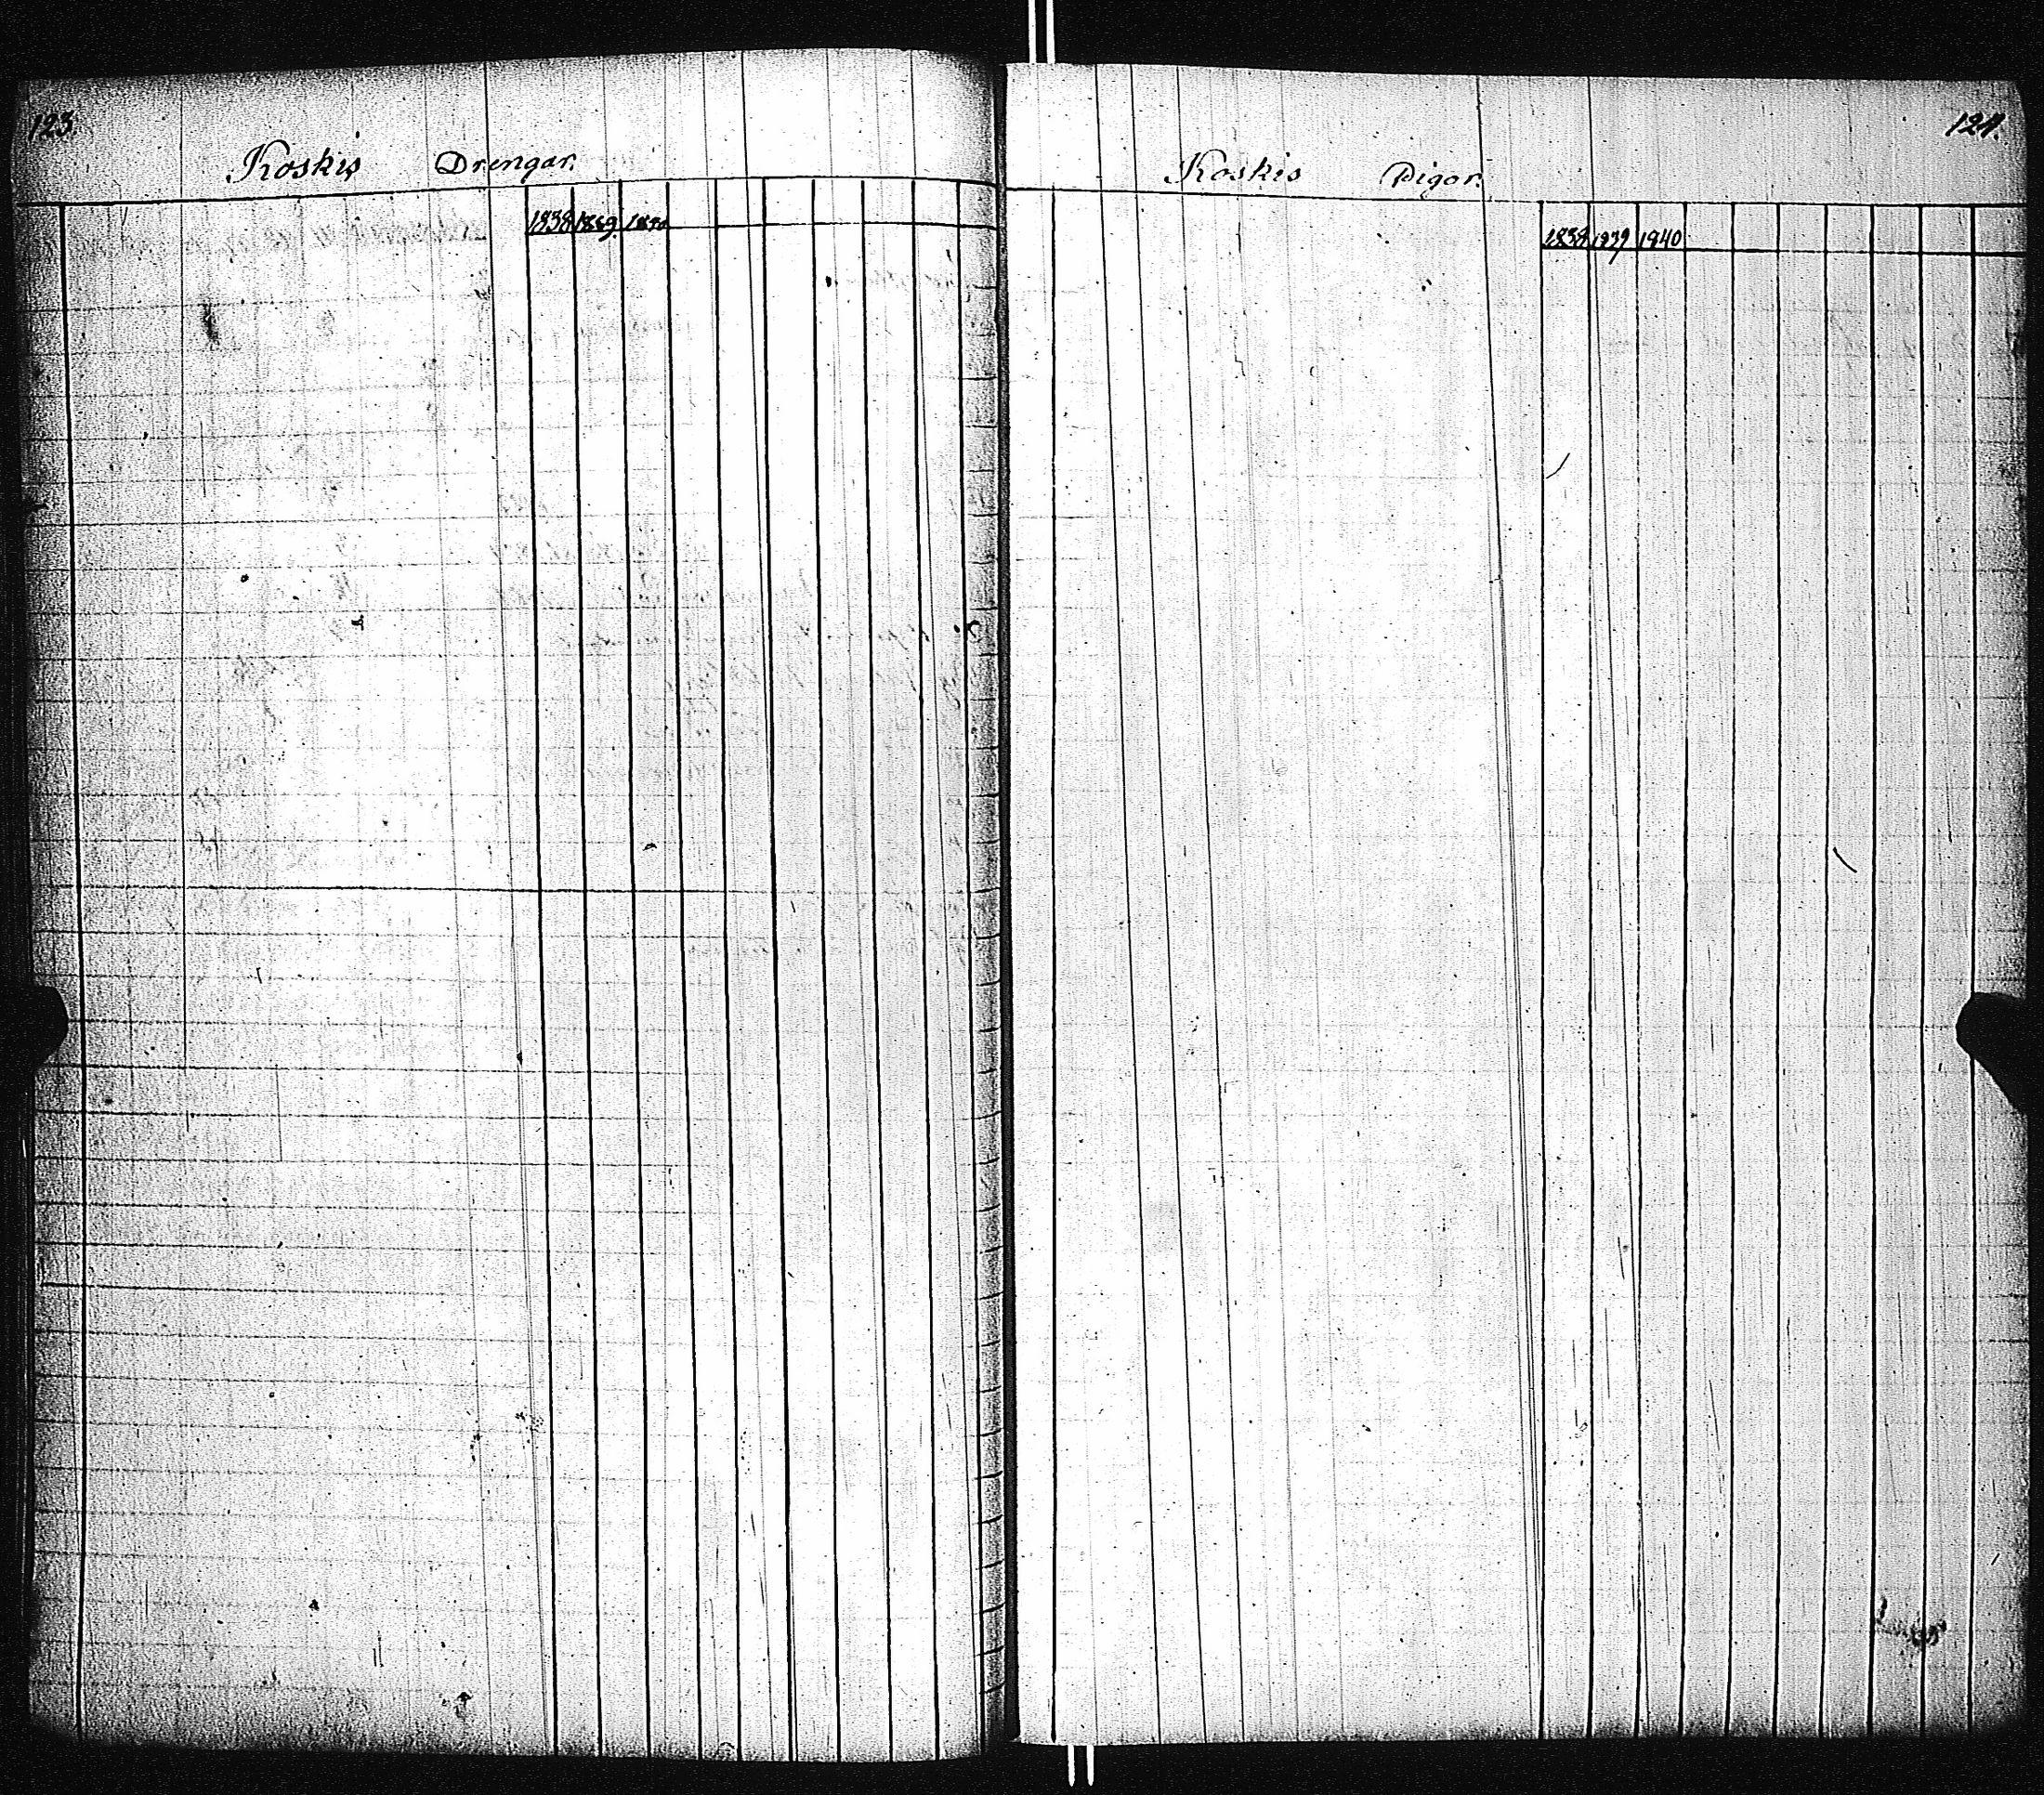 123.
Koskis Drengar.
1838 1839. 1840
124.
Koskis Pigor.
1838 1839 1840